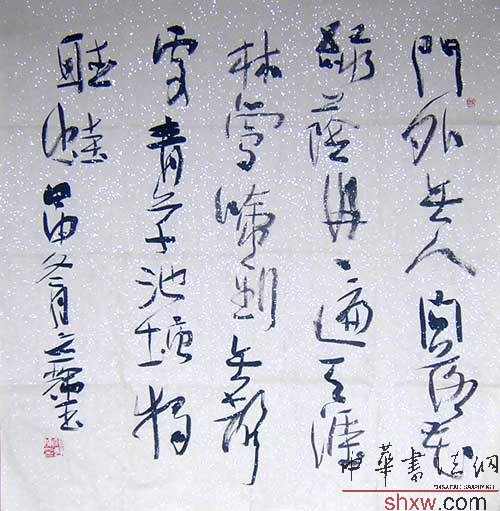 門外無人問落花
綠蔭冉々遍天涯
林鶯啼到無聲
處青草池塘獨
聽蛙 甲申冬月 書
中華書法網
shxw.com